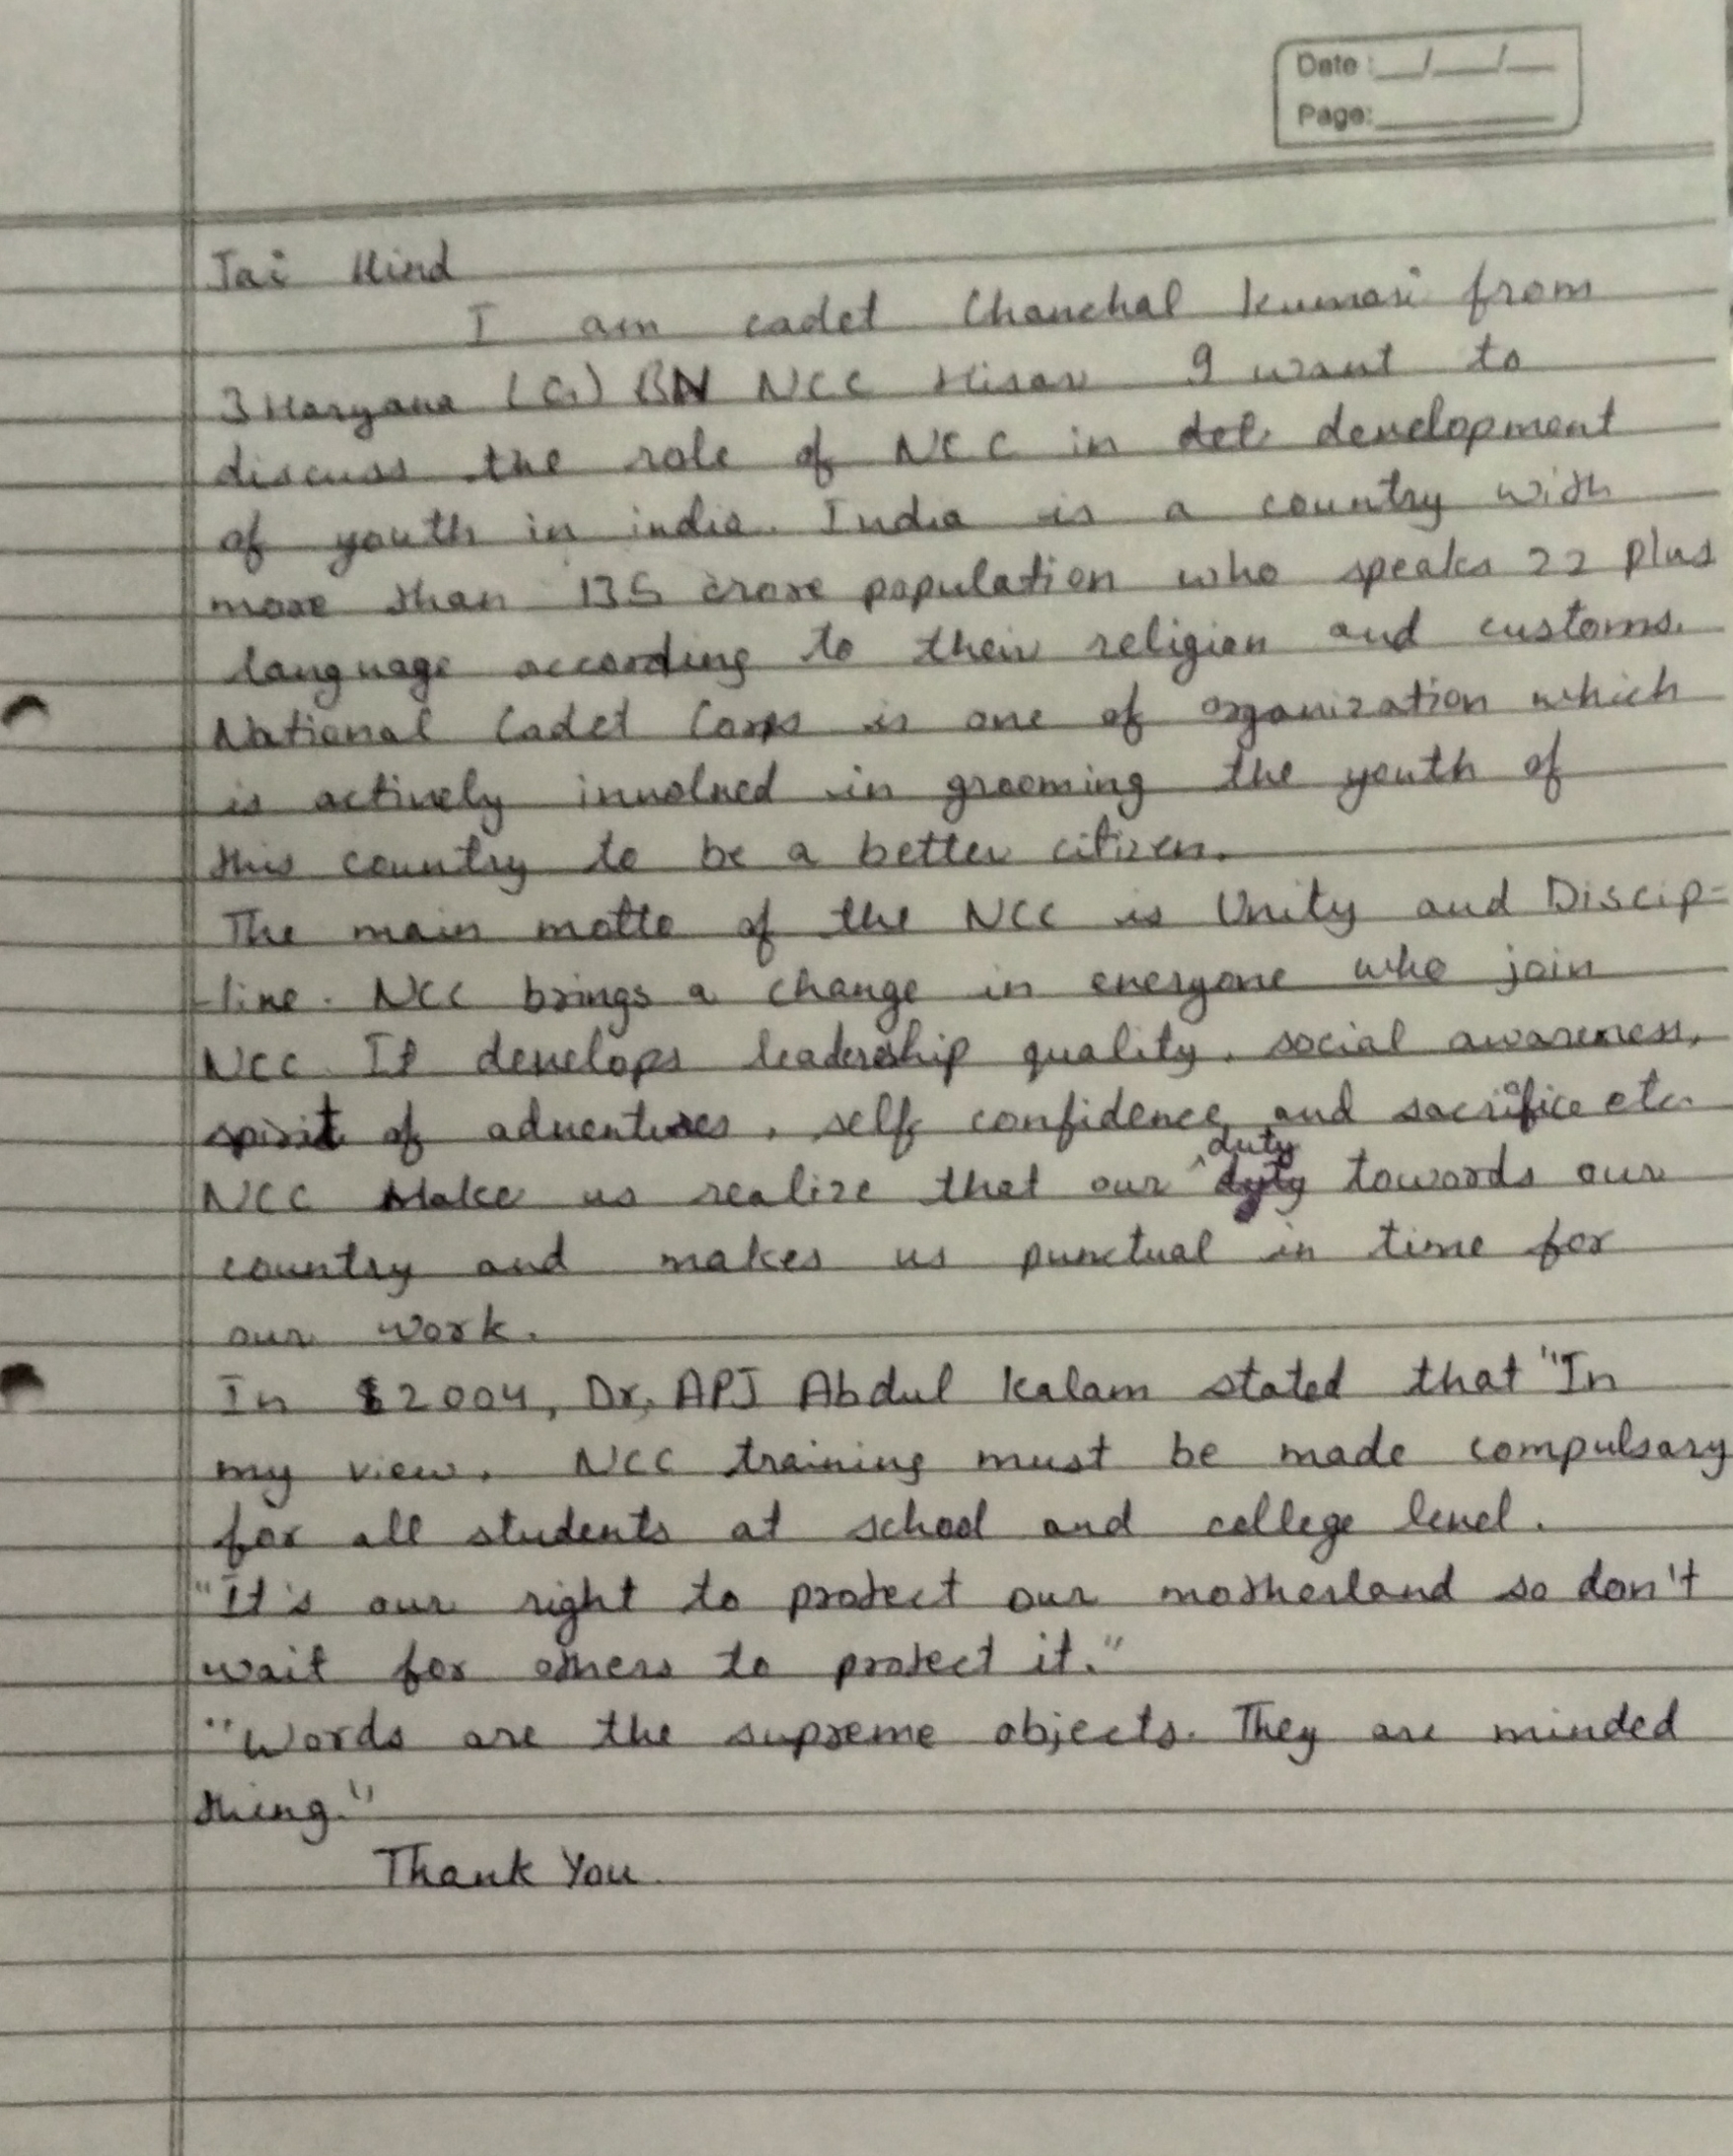 Date : __/__/__
Page: ________
Jai Hind
I am cadet Chanchal Kumari from
3 Haryana (G) BN NCC Hisar I want to
discuss the role of NCC in development
of youth in india. India is a country with
more than 135 crore population who speaks 22 plus
language according to their religion and customs.
National Cadet Corps is one of organization which
is actively involved in grooming the youth of
this country to be a better citizen.
The main motto of the NCC is Unity and Discip-
-line. NCC brings a change in everyone who join
NCC. It develops leadership quality, social awareness,
spirit of adventures, self confidence and sacrifice etc.
NCC Make us realize that our duty towards our
country and makes us punctual in time for
our work.
In 2004, Dr. APJ Abdul Kalam stated that "In
my view, NCC training must be made compulsary
for all students at school and college level.
"It's our right to protect our motherland so don't
wait for others to protect it."
"Words are the supreme objects. They are minded
thing."
Thank You